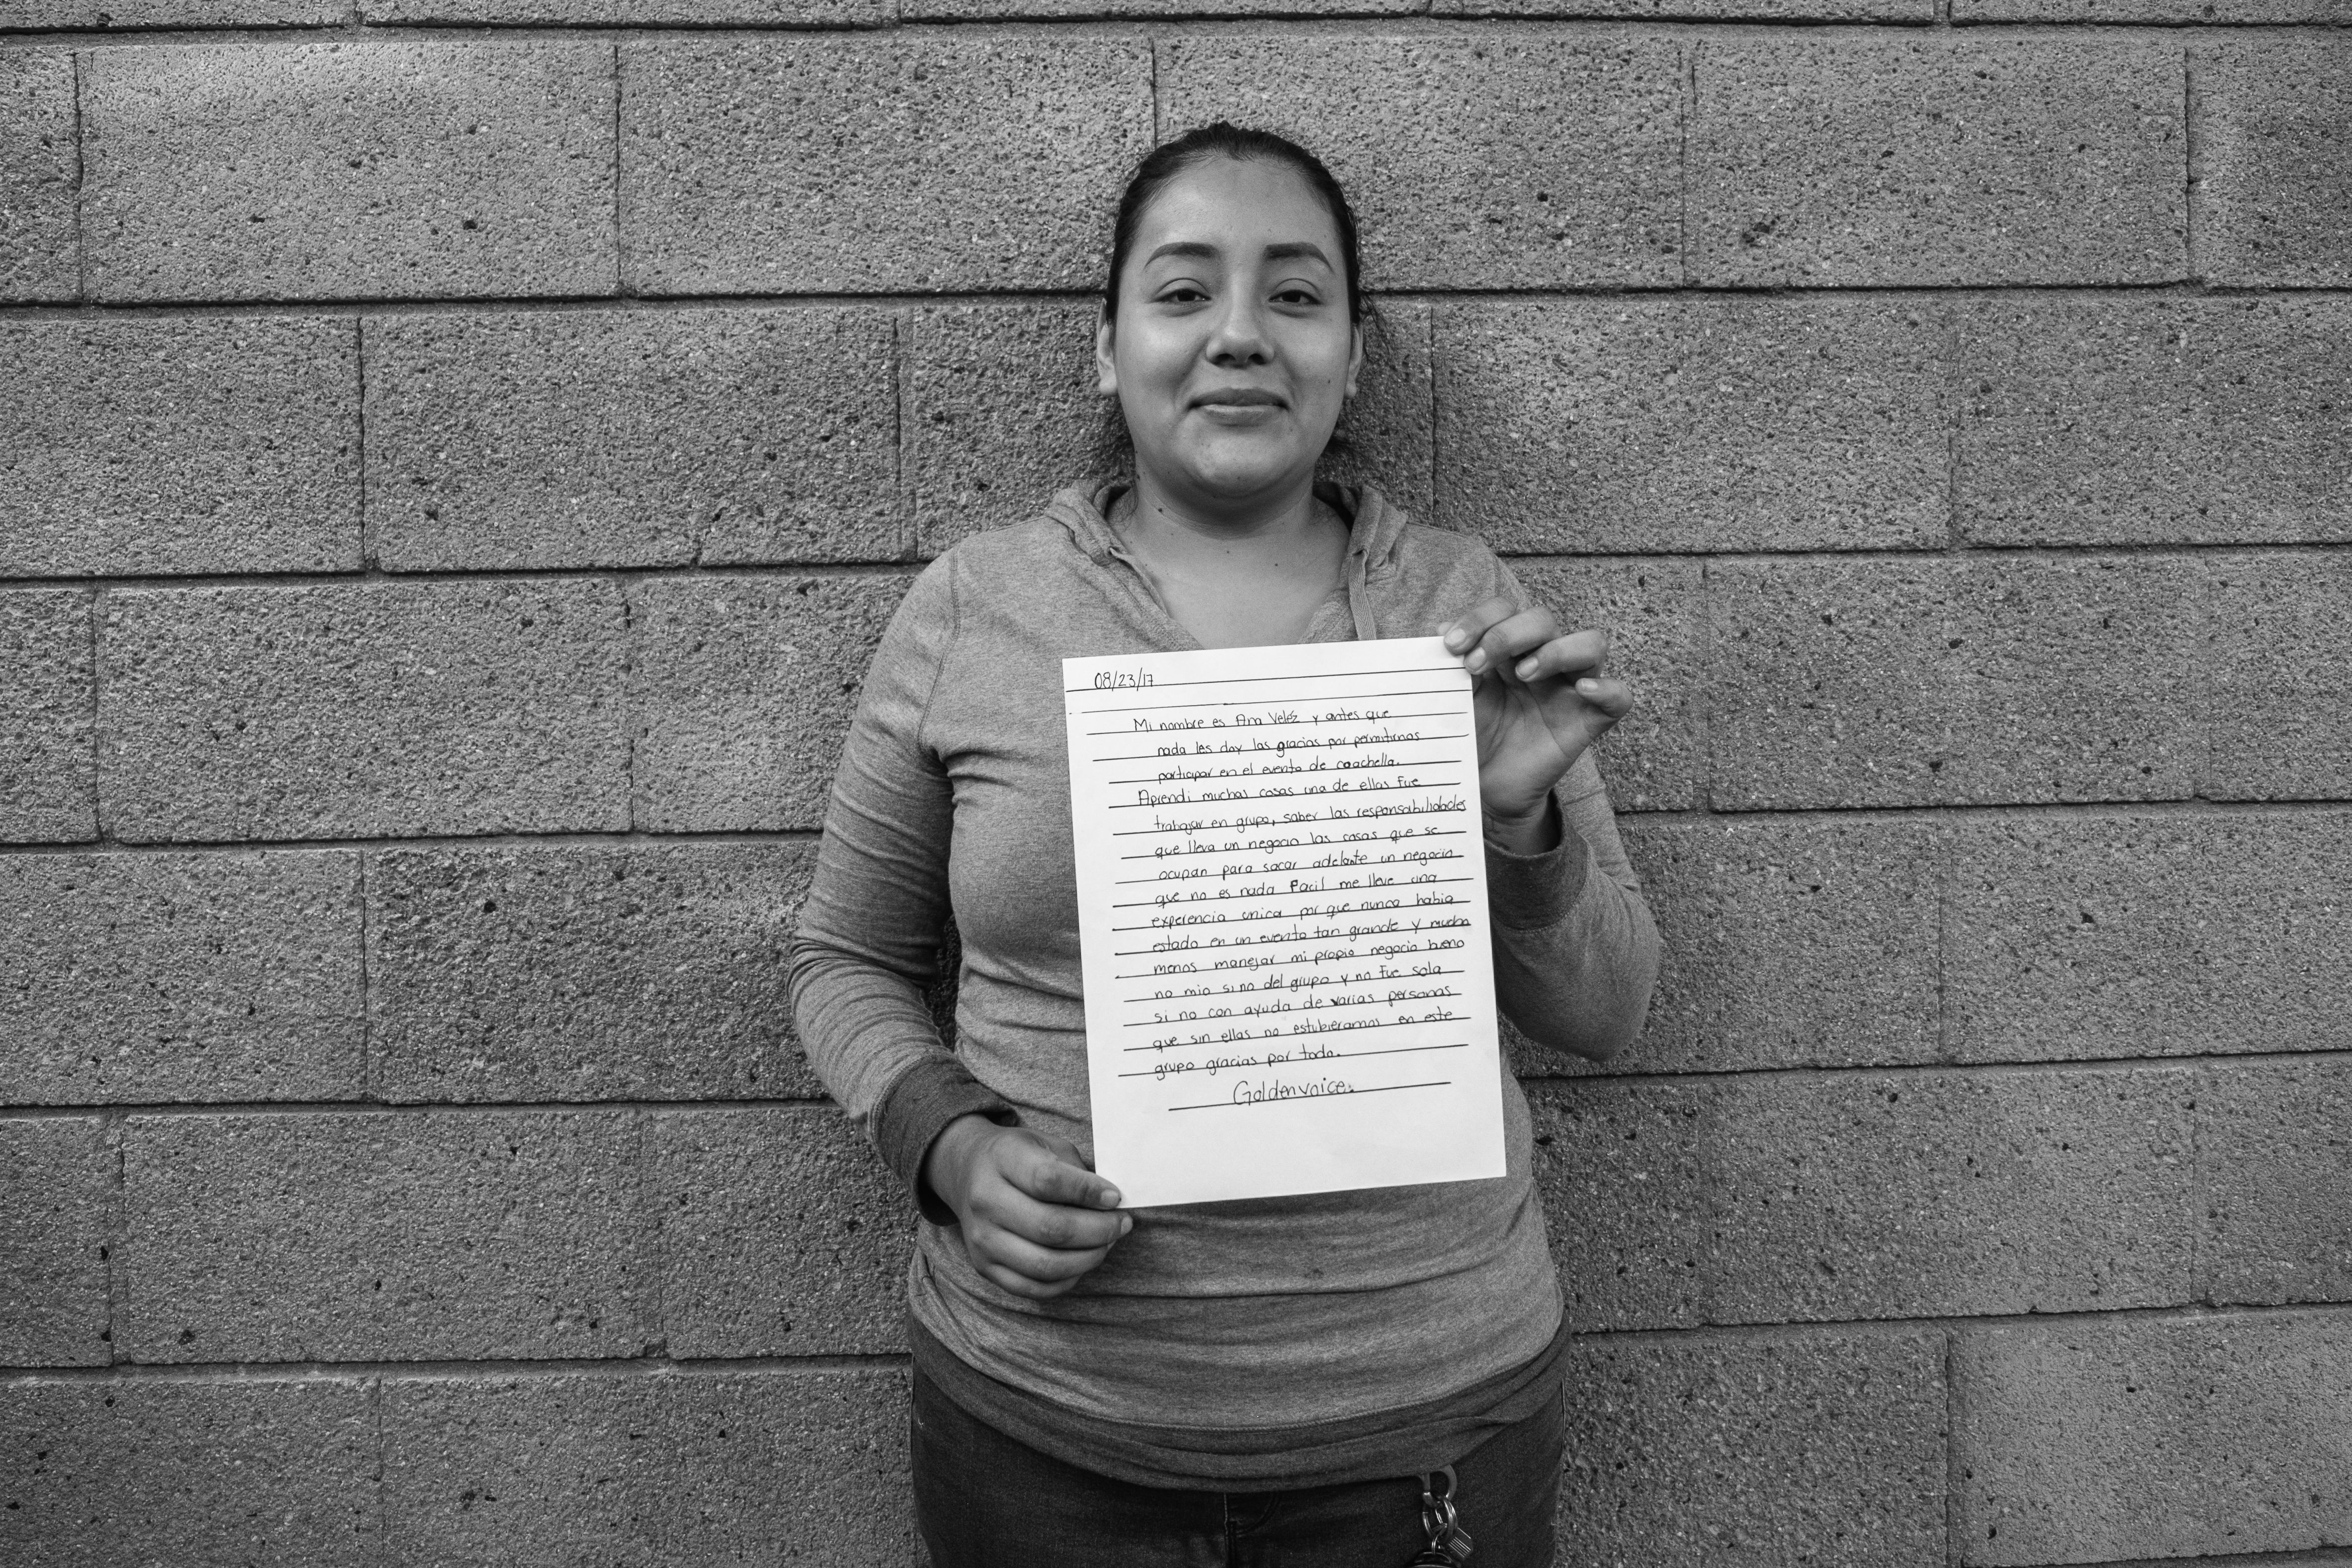 08/23/17
Mi nombre es Ana Veléz y antes que
nada les doy las gracias por permitirnos
participar en el evento de coachella.
Aprendi muchas cosas una de ellas fue
trabajar en grupo, saber las responsabilidades
que lleva un negocio las cosas que se
ocupan para sacar adelante un negocio
que no es nada facil me lleve una
experencia unica por que nunca habia
estado en un evento tan grande y mucho
menos manejar mi propio negocio bueno
no mio si no del grupo y no fue sola
si no con ayuda de varias personas
que sin ellas no estubieramos en este
grupo gracias por todo.
Goldenvoice.